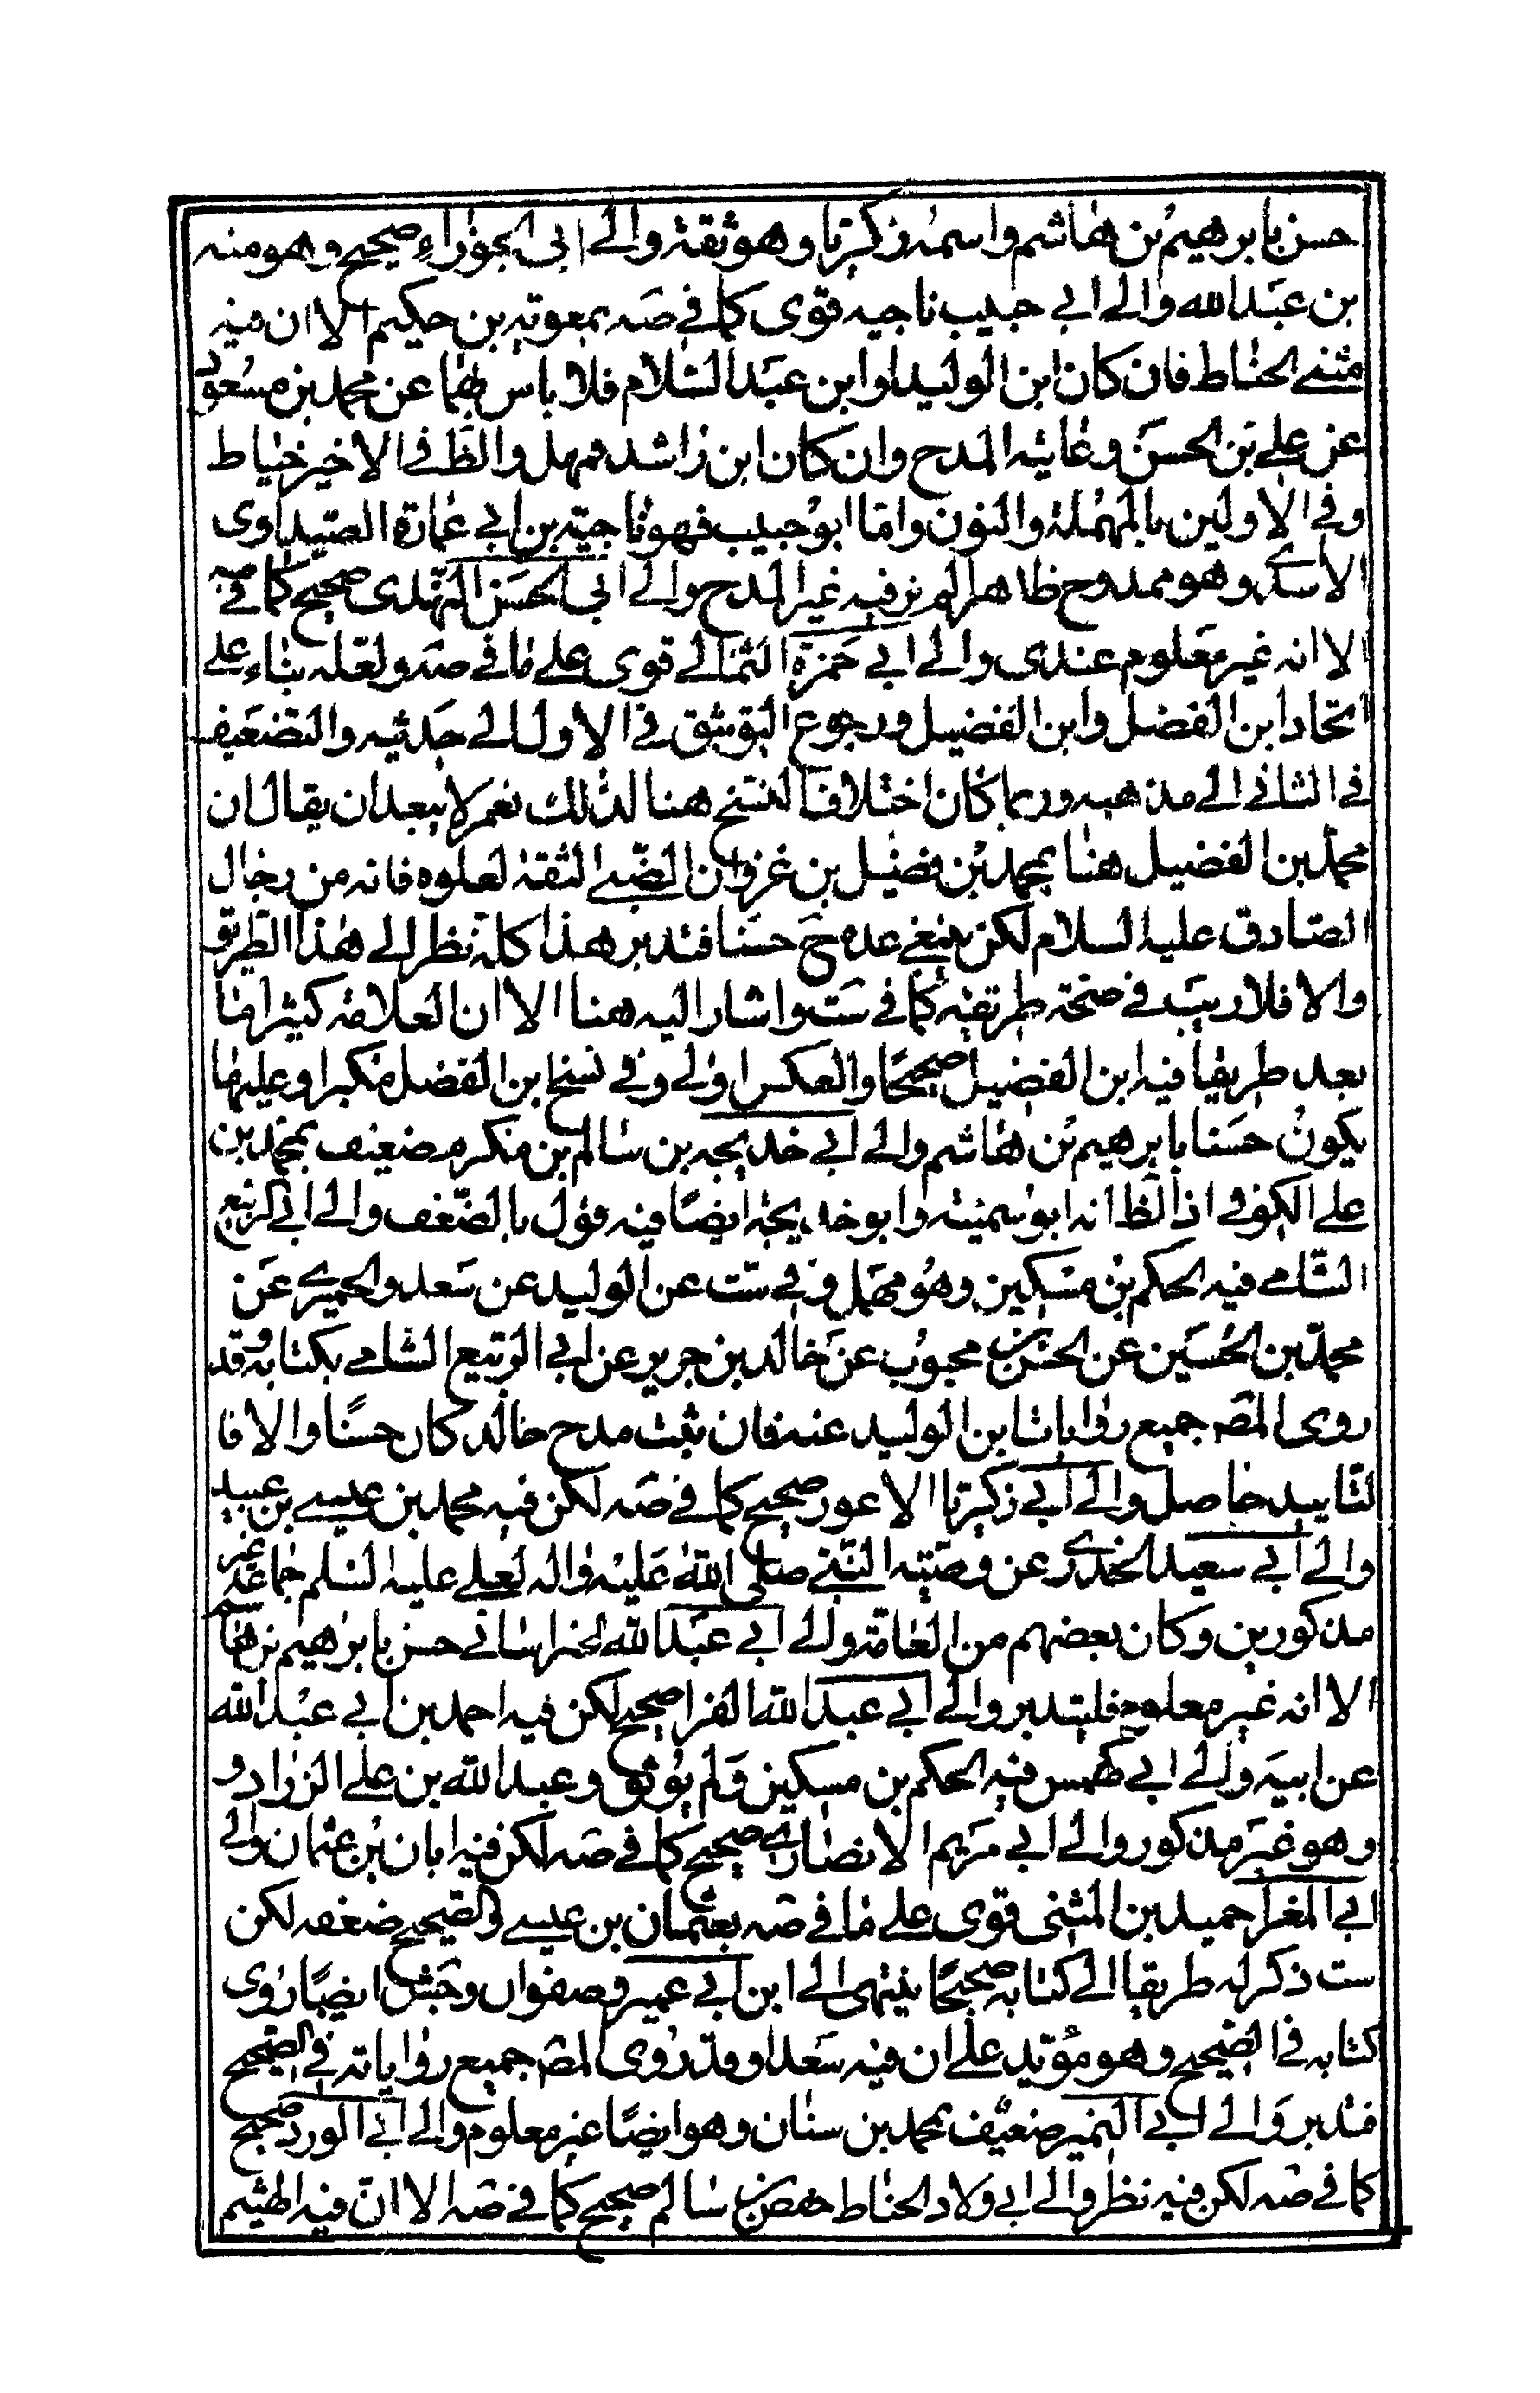 حسن بابرهيم بن هاشم واسمه زكريا وهو ثقة والى ابى الجوزاء صحيح وهو منبه
بن عبد الله والى ابي حبيب ناجيه قوى كما في صه بمعوية بن حكيم الا ان فيه
مثنى الحناط فان كان ابن الوليد او ابن عبد السلام فلا باس بهما عن محمد بن مسعود
عن علي بن الحسن وغايته المدح وان كان ابن راشد فمهمل والظ في الاخير خياط
وفي الاولين بالمهملة والنون واما ابو حبيب فهو ناجية بن ابي عمارة الصيداوى
الاسدى وهو ممدوح ظاهرا لم نر فيه غير المدح والى ابي الحسن النهدى صحيح كما في صه
الا انه غير معلوم عندى والى ابي حمزة الثمالي قوى على ما في صه ولعله بناء على
اتحاد ابن الفضل وابن الفضيل ورجوع التوثيق في الاول الى حديثه والتضعيف
في الثاني الى مذهبه وربما كان اختلاف النسخ هنا لذلك نعم لا يبعد ان يقال ان
محمد بن الفضيل هنا محمد بن فضيل بن غزوان الضبى الثقة لعلوه فانه من رجال
الصادق عليه السلام لكن ينبغي عده ح حسنا فتدبر هذا كله نظرا الى هذا الطريق
والا فلا ريب في صحة طريقه كما في ست واشار اليه هنا الا ان العلامة كثيرا ما
يعد طريقا فيه ابن الفضيل صحيحا والعكس اولى وفي نسخ ابن الفضل مكبرا وعليها
يكون حسنا بابرهيم بن هاشم والى ابي خديجه بن سالم بن مكرم ضعيف بمحمد بن
علي الكوفي اذ الظ انه ابو سمينة وابو خديجة ايضا فيه قول بالضعف والى ابي الربيع
الشامي فيه الحكم بن مسكين وهو مهمل وفي ست عن الوليد عن سعد والحميري عن
محمد بن الحسين عن الحسن بن محبوب عن خالد بن جرير عن ابي الربيع الشامي بكتابه وقد
روى المصه جميع روايات ابن الوليد عنه فان ثبت مدح خالد كان حسنا والا فا
لتاييد حاصل والى ابي زكريا الاعور صحيح كما في صه لكن فيه محمد بن عيسى بن عبيد
والى ابي سعيد الخدري عن وصية النبي صلى الله عليه واله لعلي عليه السلم جماعة غير
مذكورين وكان بعضهم من العامة والى ابي عبد الله الخراساني حسن بابرهيم بن هاشم
الا انه غير معلوم فليتدبر والى ابي عبد الله الفرا صحيح لكن فيه احمد بن ابي عبد الله
عن ابيه والى ابي كهمس فيه الحكم بن مسكين ولم يوثق وعبد الله بن علي الزراد و
وهو غير مذكور والى ابي مريم الانصاري صحيح كما في صه لكن فيه ابان بن عثمان والى
ابي المغرا حميد بن المثنى قوى على ما في صه بعثمان بن عيسى والصحيح ضعفه لكن
ست ذكر له طريقا الى كتابه صحيحا ينتهى الى ابن ابي عمير وصفوان وجش ايضا روى
كتابه في الصحيح وهو مؤيد على ان فيه سعدا وقد روى المصه جميع رواياته في الصحيح
فتدبر والى ابي النمير ضعيف بمحمد بن سنان وهو ايضا غير معلوم والى ابي الورد صحيح
كما في صه لكن فيه نظر والى ابي ولاد الحناط حفص بن سالم صحيح كما في صه الا ان فيه الهيثم